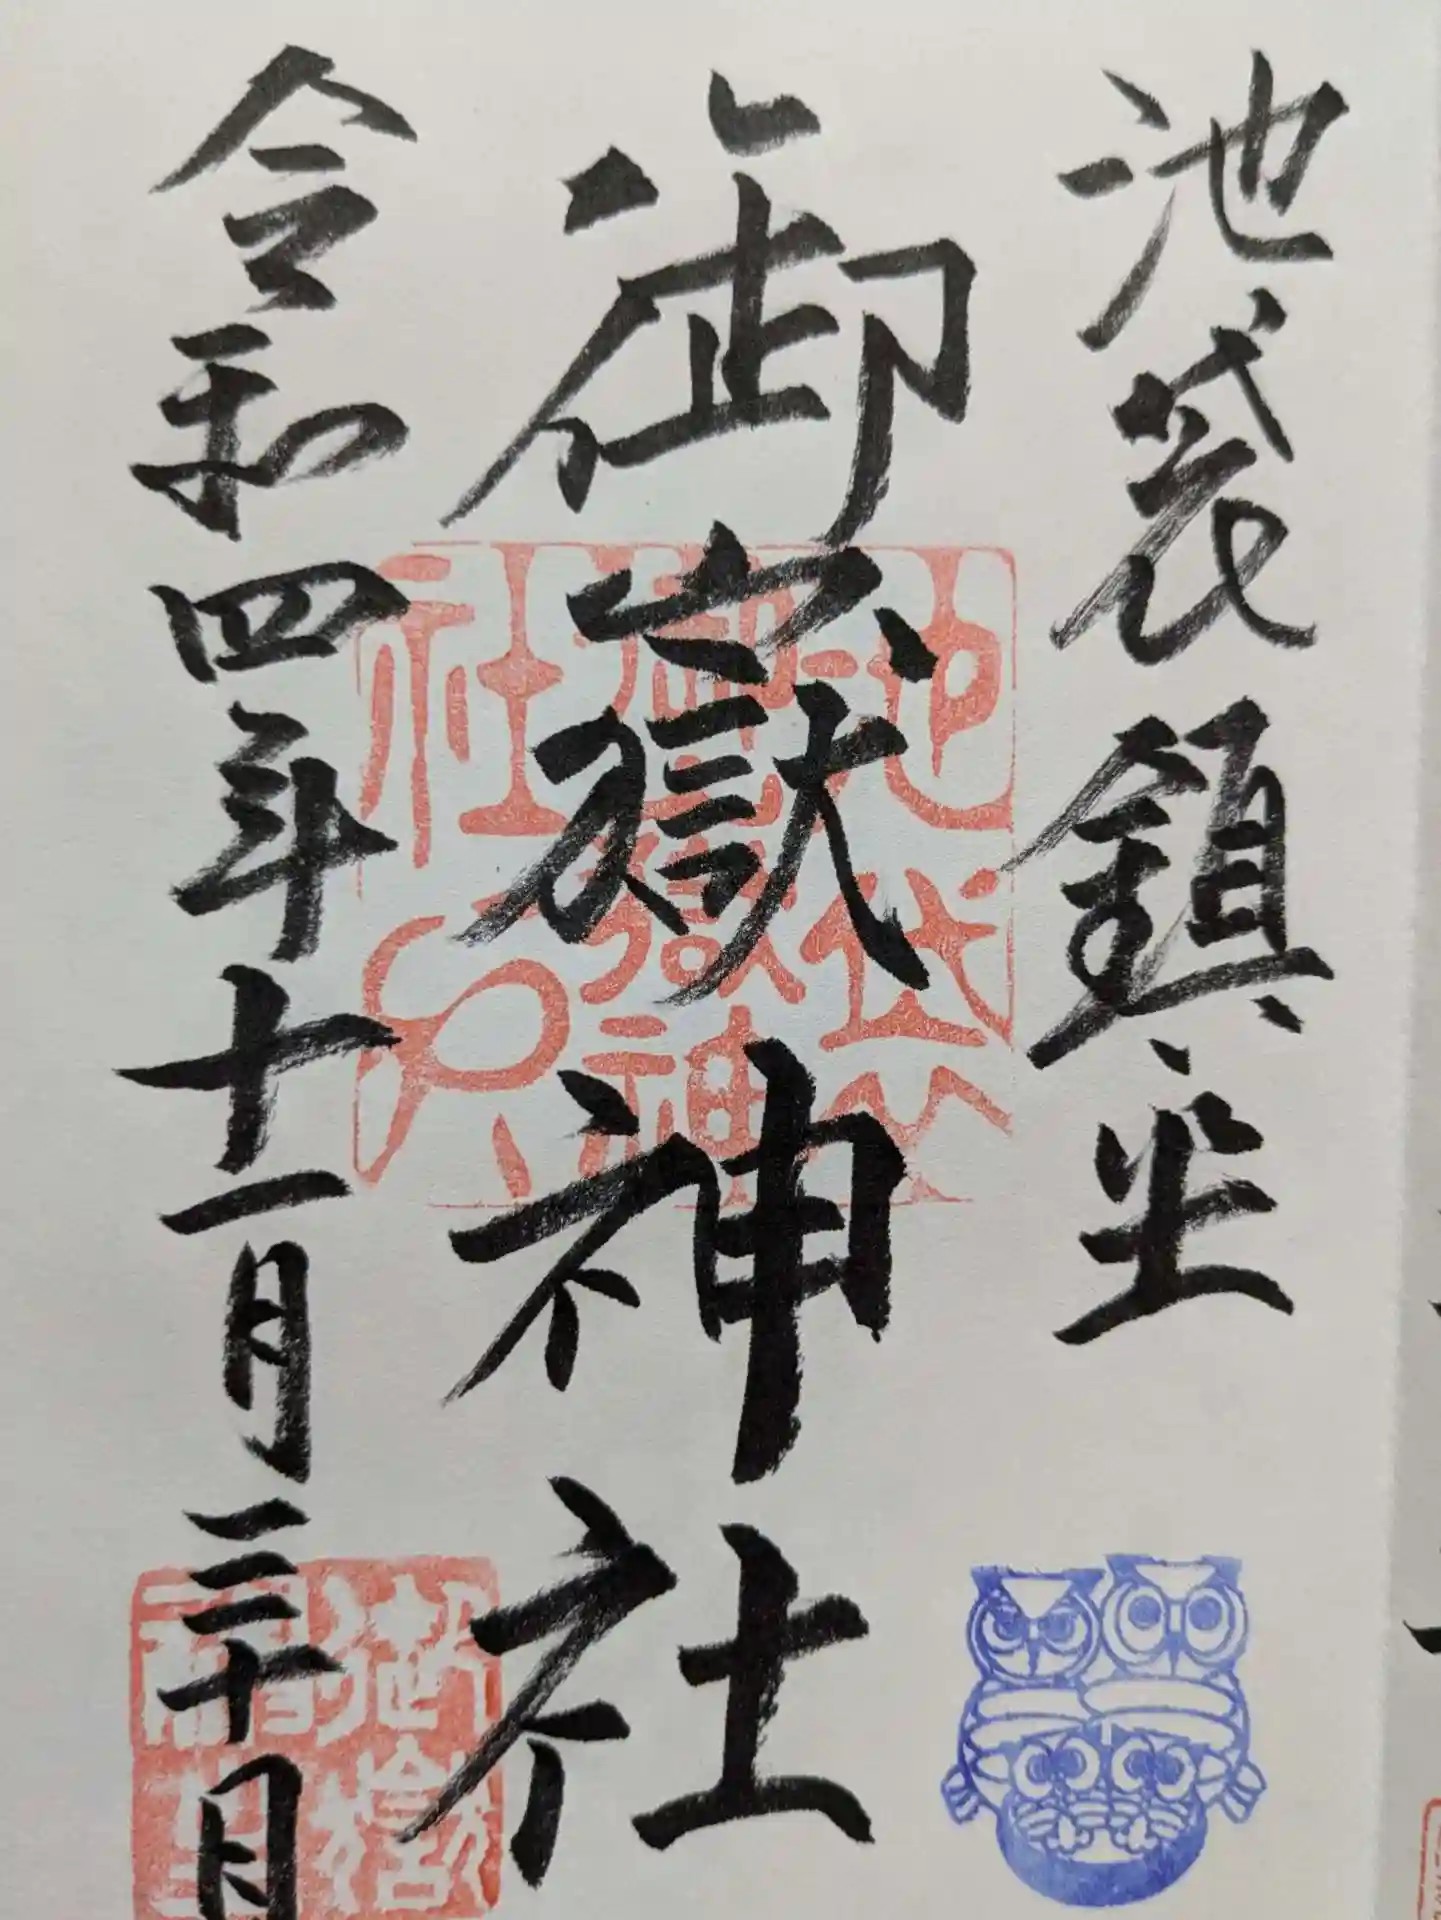 池袋鎮坐
御嶽神社
令和四年十一月三十日
池袋
御嶽神
社之印
御嶽
神社